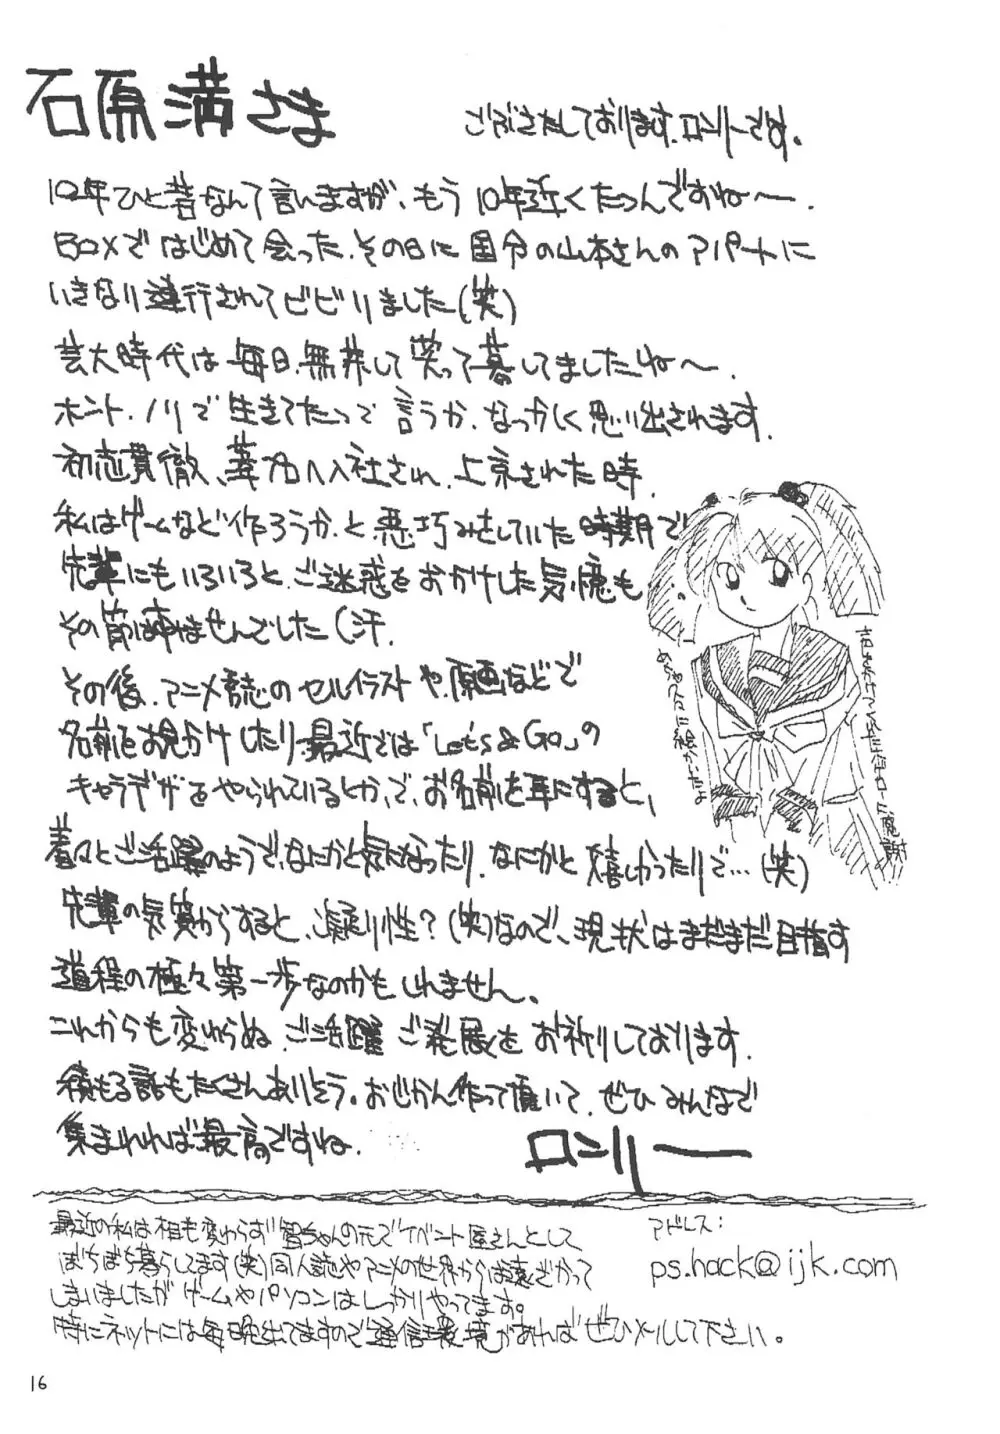 石原満さま
ごぶさたしております、ロンリーです。
10年ひと昔なんて言いますが、もう10年近くたつんですね〜.
BOXではじめて会った、その日に国分の山本さんのアパートに
いきなり連行されてビビりました(笑)
芸大時代は毎日、無茶して笑って暮してましたね〜.
ホント、ノリで生きてたって言うか、なつかしく思い出されます.
初志貫徹、葦プロへ入社され、上京された時、
私はゲームなど作ろうか、と悪巧みをしていた時期で
先輩にもいろいろと、ご迷惑をおかけした気憶も、
その節はすみませんでした(汗.
その後、アニメ誌のセルイラストや、原画などで
名前をお見かけしたり、最近では「Let's & Go」の
キャラデザをやられているとか、で、お名前を耳にすると、
着々とご活躍のようで、なにかと気になったり、なにかと嬉しかったりで…(笑)
先輩の気質からすると、凝り性?(笑)なので、現状はまだまだ目指す
道程の極々第一歩なのかもしれません。
これからも変わらぬ、ご活躍ご発展をお祈りしております.
積もる話もたくさんありそう。おじかん作って頂いて、ぜひみんなで
集まれれば最高ですね.
ロンリー
最近の私は相も変わらず 智ちゃんの元でイベント屋さんとして
ぼちぼち暮らしてます(笑)同人誌やアニメの世界からは遠ざかって
しまいましたが ゲームやパソコンはしっかりやってます。
特にネットには毎晩出てますので通信環境があればぜひメールして下さい。
アドレス:
ps.hack@ijk.com
16